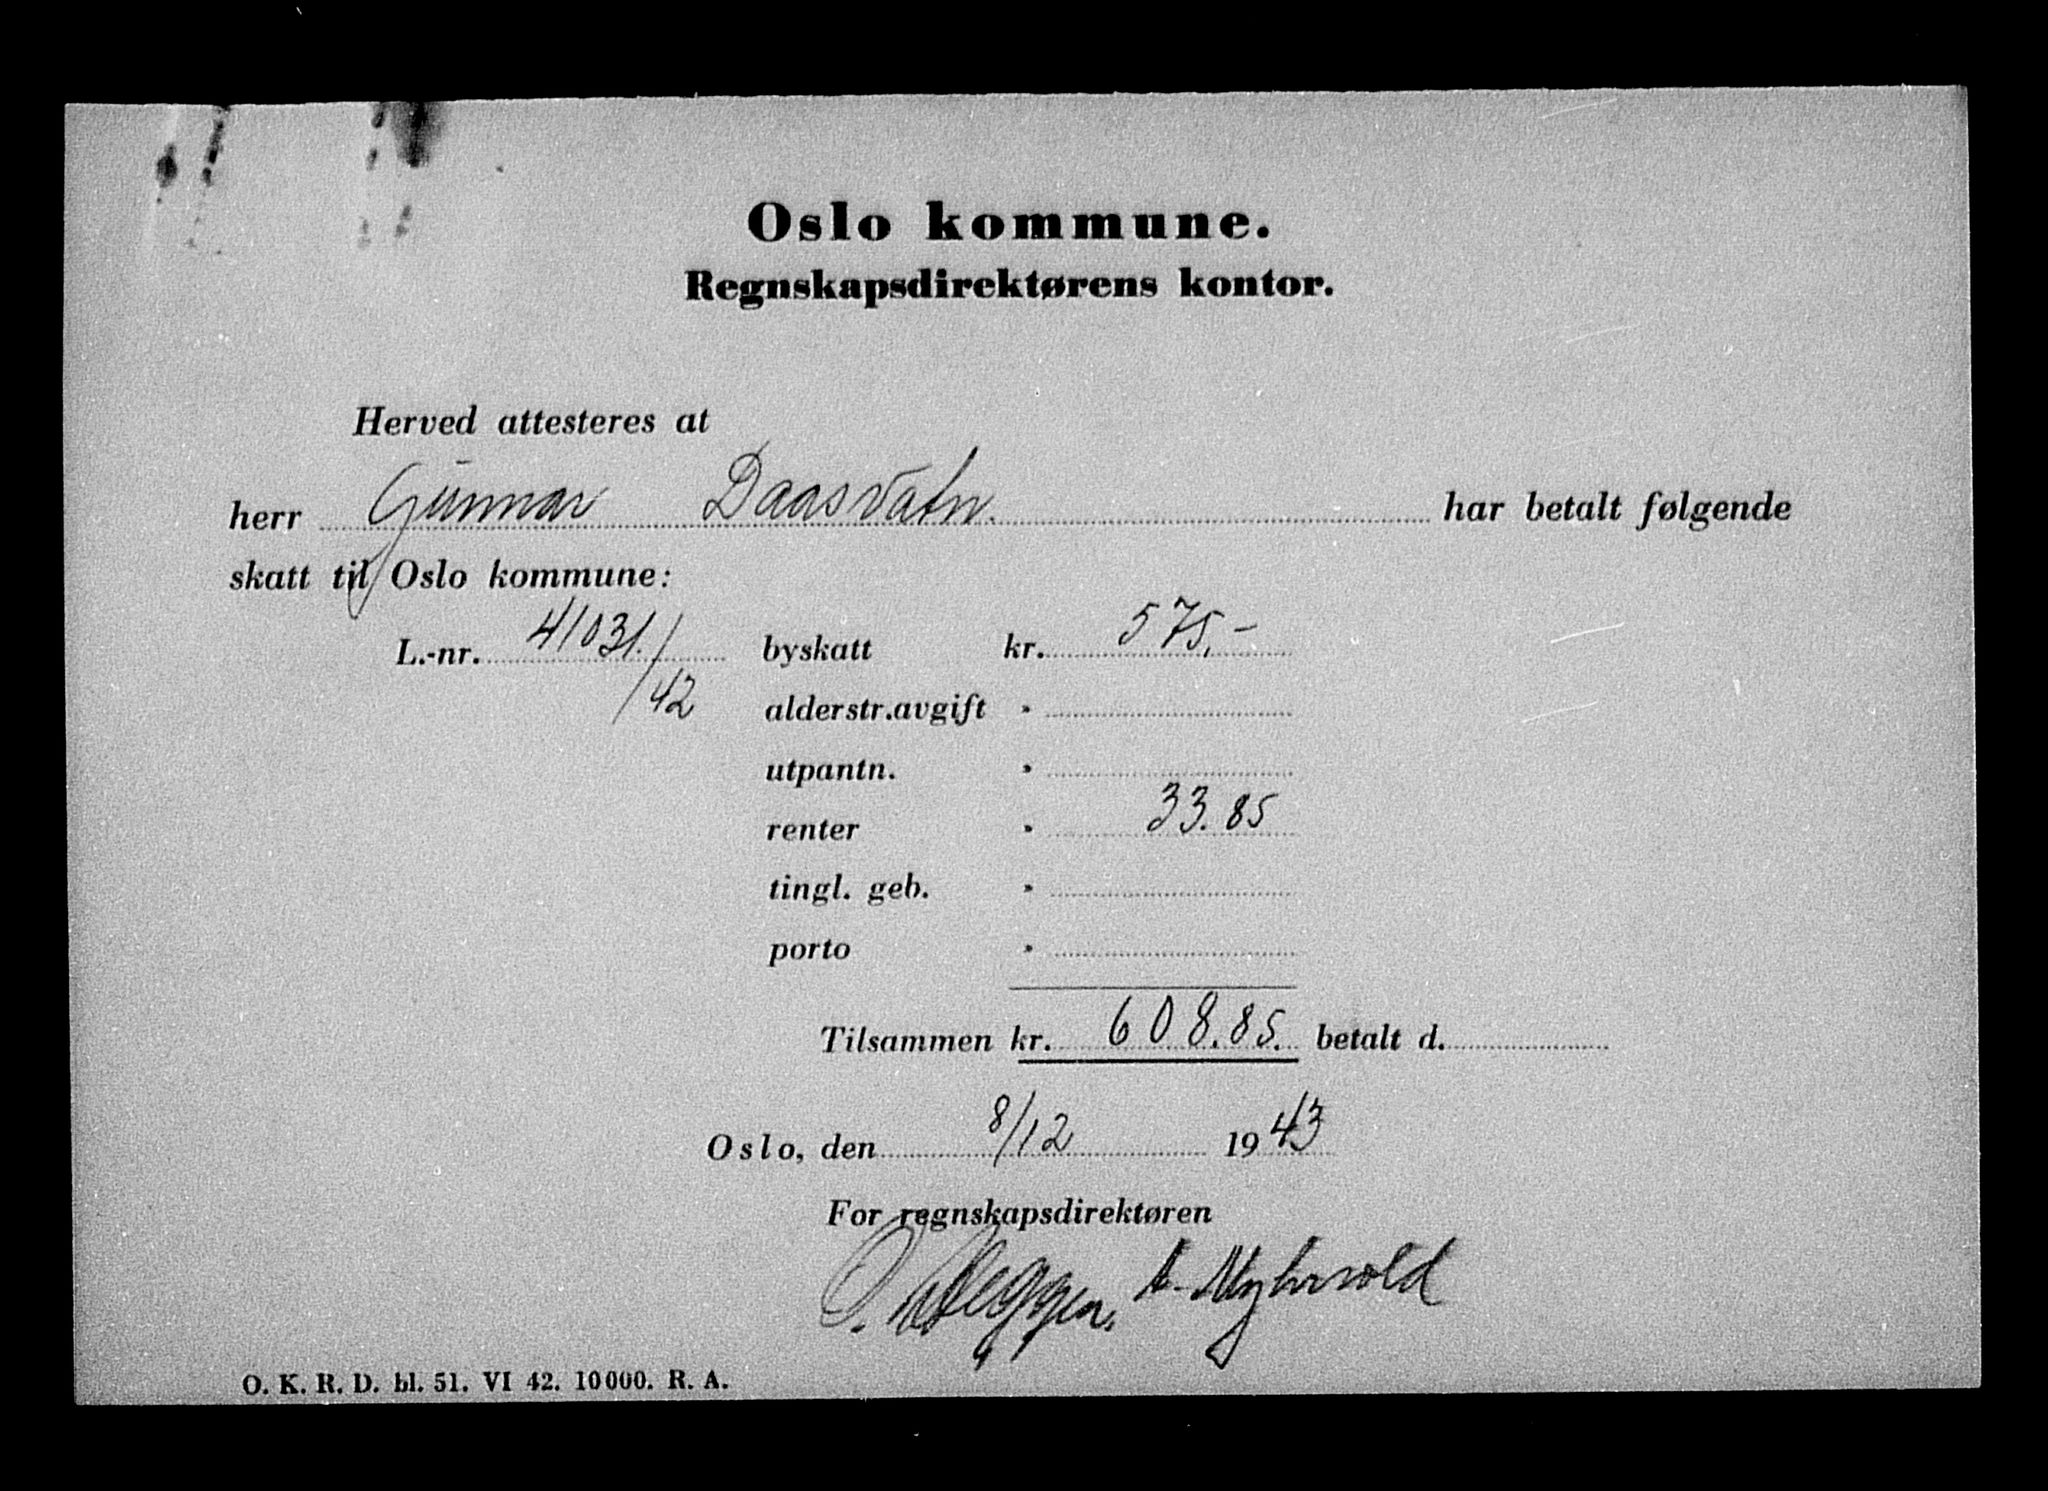 Oslo kommune.
Regnskapsdirektørens kontor.
Herved attesteres at
herr Gunnar Daasvatn. har betalt følgende
skatt til Oslo kommune:
L.-nr. 41031./42 byskatt kr. 575,-
alderstr.avgift "
utpantn. "
renter " 33.85
tingl. geb. "
porto "
Tilsammen kr. 608.85. betalt d.
Oslo, den 8/12 1943
For regnskapsdirektøren
A. Myhrvold
O. K. R. D. bl. 51. VI 42. 10000. R. A.